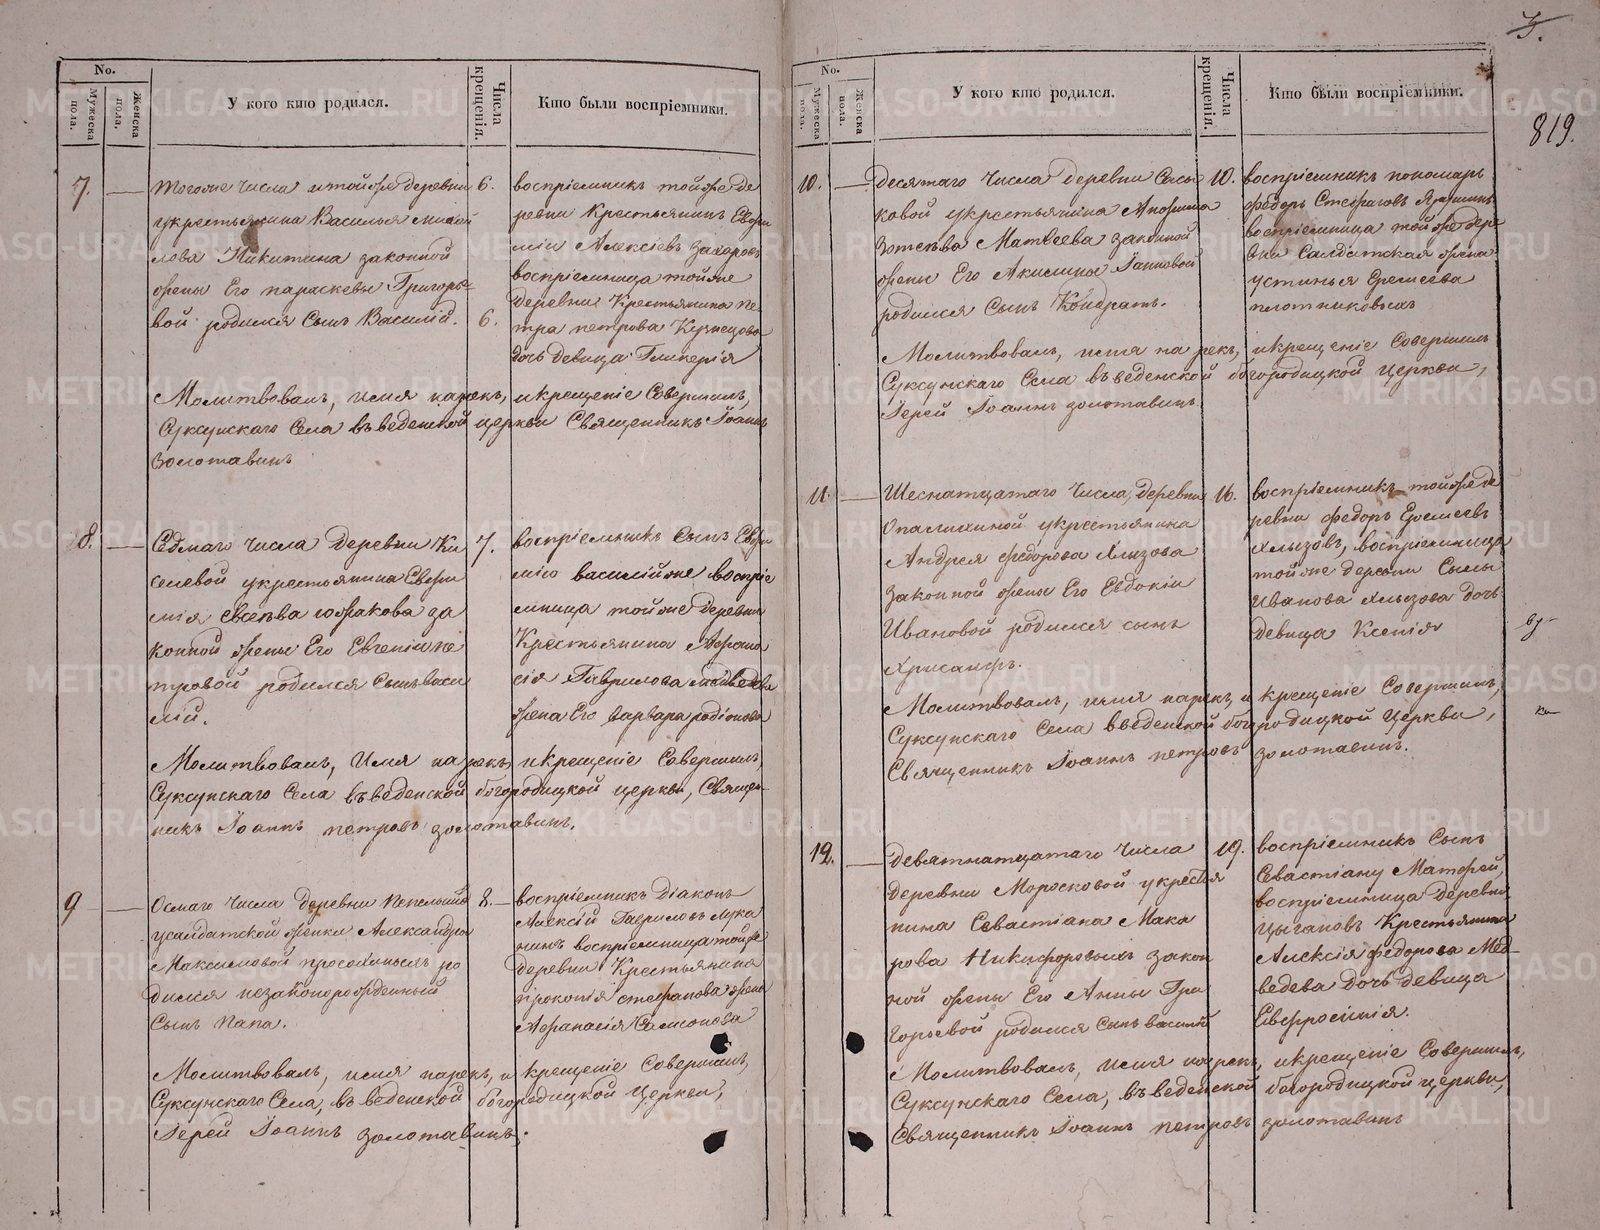 No.
Мужеска пола.
Женска пола.
У кого кто родился.
Числа крещенія.
Кто были воспріемники.
7.
тогоже числа итойже деревни
укрестьянина Василья Михай
лова Никитина законной
жены Его параскевы Григорь=
вой родился Сынъ Василій.
6.
6.
воспріемникъ тойже де
ревни Крестьянинъ Евфи
мій Алексіевъ Захаровъ
воспріемница тойже
деревни Крестьянина пе-
тра петрова Кузнецова
дочь девица Гликерія
Молитвовалъ, имя нарекъ, икрещеніе Совершилъ,
Суксунскаго Села въведенской церкви Священникъ Іоаннъ
золотавинъ
8.
Седмаго числа Деревни Ки
селевой укрестьянина Евфи
мія за
конной жены Его Евгеніи пе
тровой родился Сынъ васи
лій.
7.
воспріемникъ Сынъ Евфи
мію василійже воспріе
мница тойже Деревни
Крестьянина Афана
сія Гаврилова Медведева
жена Его варвара родіонова
Молитвовалъ, Имя нарекъ икрещеніе Совершилъ,
Суксунскаго Села въведенской богородицкой церкви, Священ-
никъ Іоаннъ петровъ золотавинъ.
9
Осмаго числа Деревни
усалдатской женки Александры
Максимовой ро
дился незаконорожденный
Сынъ папа.
8.
воспріемникъ Діаконъ
Алексій Гавриловъ Лука
нинъ воспріемница тойже
деревни Крестьянина
прокопія стефанова жена
Афанасія Самсонова
Молитвовалъ, имя нарекъ, и крещеніе Совершилъ,
Суксунскаго Села, въведенской богородицкой Церкви,
Іерей Іоаннъ золотавинъ.
819.
No.
Мужеска пола.
Женска пола.
У кого кто родился.
Числа крещенія.
Кто были воспріемники.
10.
Десятаго числа деревни Сысы
ковой укрестьянина
Матвеева законной
жены Его Акилины Іаковой
родился Сынъ Кондратъ.
10.
воспріемникъ пономарь
федоръ Стефановъ
воспріемница тойже дере
вни Салдатская жена
устинья Еремеева
плотниковыхъ
Молитвовалъ, имя нарекъ, икрещеніе Совершилъ
Суксунскаго Села въведенской богородицкой церкви,
Іерей Іоаннъ золотавинъ
11.
Шеснатцатаго числа, деревни
Опалихиной укрестьянина
Андрея федорова Хлызова
законной жены Его Евдокіи
Ивановой родился сынъ
Хрисанфъ.
16.
воспріемникъ тойже де
ревни федоръ Еремеевъ
Хлызовъ, воспріемница
тойже деревни Сысы
Иванова Хлызова дочь
девица Ксенія
Молитвовалъ, имя нарекъ, и крещеніе Совершилъ,
Суксунскаго Села введенской богородицкой Церкви,
Священникъ Іоаннъ петровъ золотавинъ.
12.
Девятнатцатаго числа
деревни Моросковой укрестья
нина Севастіана Мака
рова Никифоровыхъ закон
ной жены Его Анны Гри
горьевой родился Сынъ василій
19.
воспріемникъ Сынъ
Севастіану Матфей,
воспріемница Деревни
цыгановъ Крестьянина
Алексія федорова Мед-
ведева Дочь девица
Евфросинія.
Молитвовалъ, имя нарекъ, икрещеніе Совершилъ,
Суксунскаго Села, въведенской богородицкой церкви,
Священникъ Іоаннъ петровъ золотавинъ
METRIKI.GASO-URAL.RU